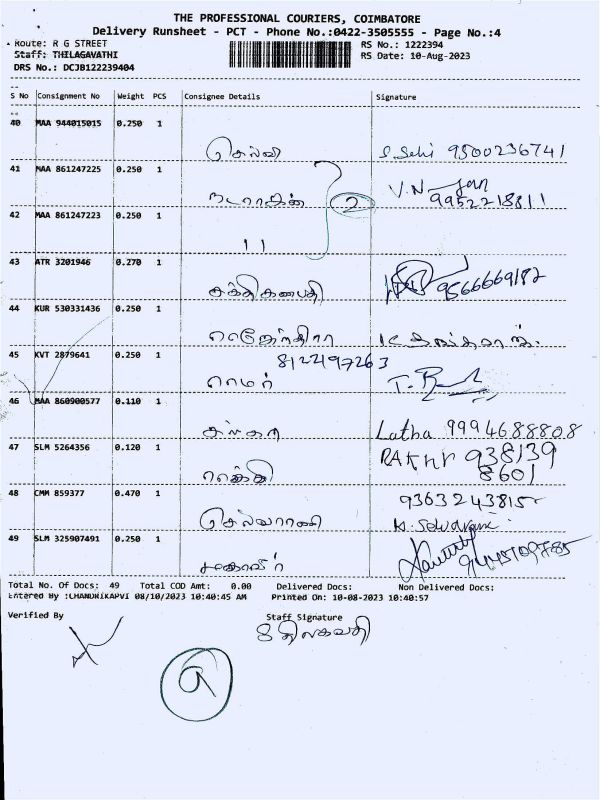 THE PROFESSIONAL COURIERS, COIMBATORE
Delivery Runsheet - PCT - Phone No.:0422-3505555 - Page No.:4
Route: R G STREET
RS No.: 1222394
Staff: THILAGAVATHI
RS Date: 10-Aug-2023
DRS No.: DCJB122239404
S No Consignment No Weight PCS Consignee Details Signature
40 MAA 944015015 0.250 1
செல்வி 9500236741
41 MAA 861247225 0.250 1
நடராஜன் 2 V.N 9952218811
42 MAA 861247223 0.250 1
11
43 ATR 3201946 0.270 1
சக்திகணபதி 9566669182
44 KUR 530331436 0.250 1
ராஜேந்திரா
45 KVT 2879641 0.250 1
8122197263
ராமர்
46 MAA 860900577 0.110 1
Latha 9994688808
47 SLM 5264356 0.120 1
938139
8601
48 CMM 859377 0.470 1
9363243815
செல்வராணி
49 SLM 325907491 0.250 1
Total No. Of Docs: 49 Total COD Amt: 0.00 Delivered Docs: Non Delivered Docs:
Entered By :CHANDRIKAPVI 08/10/2023 10:40:45 AM Printed On: 10-08-2023 10:40:57
Verified By
Staff Signature
திலகவதி
9